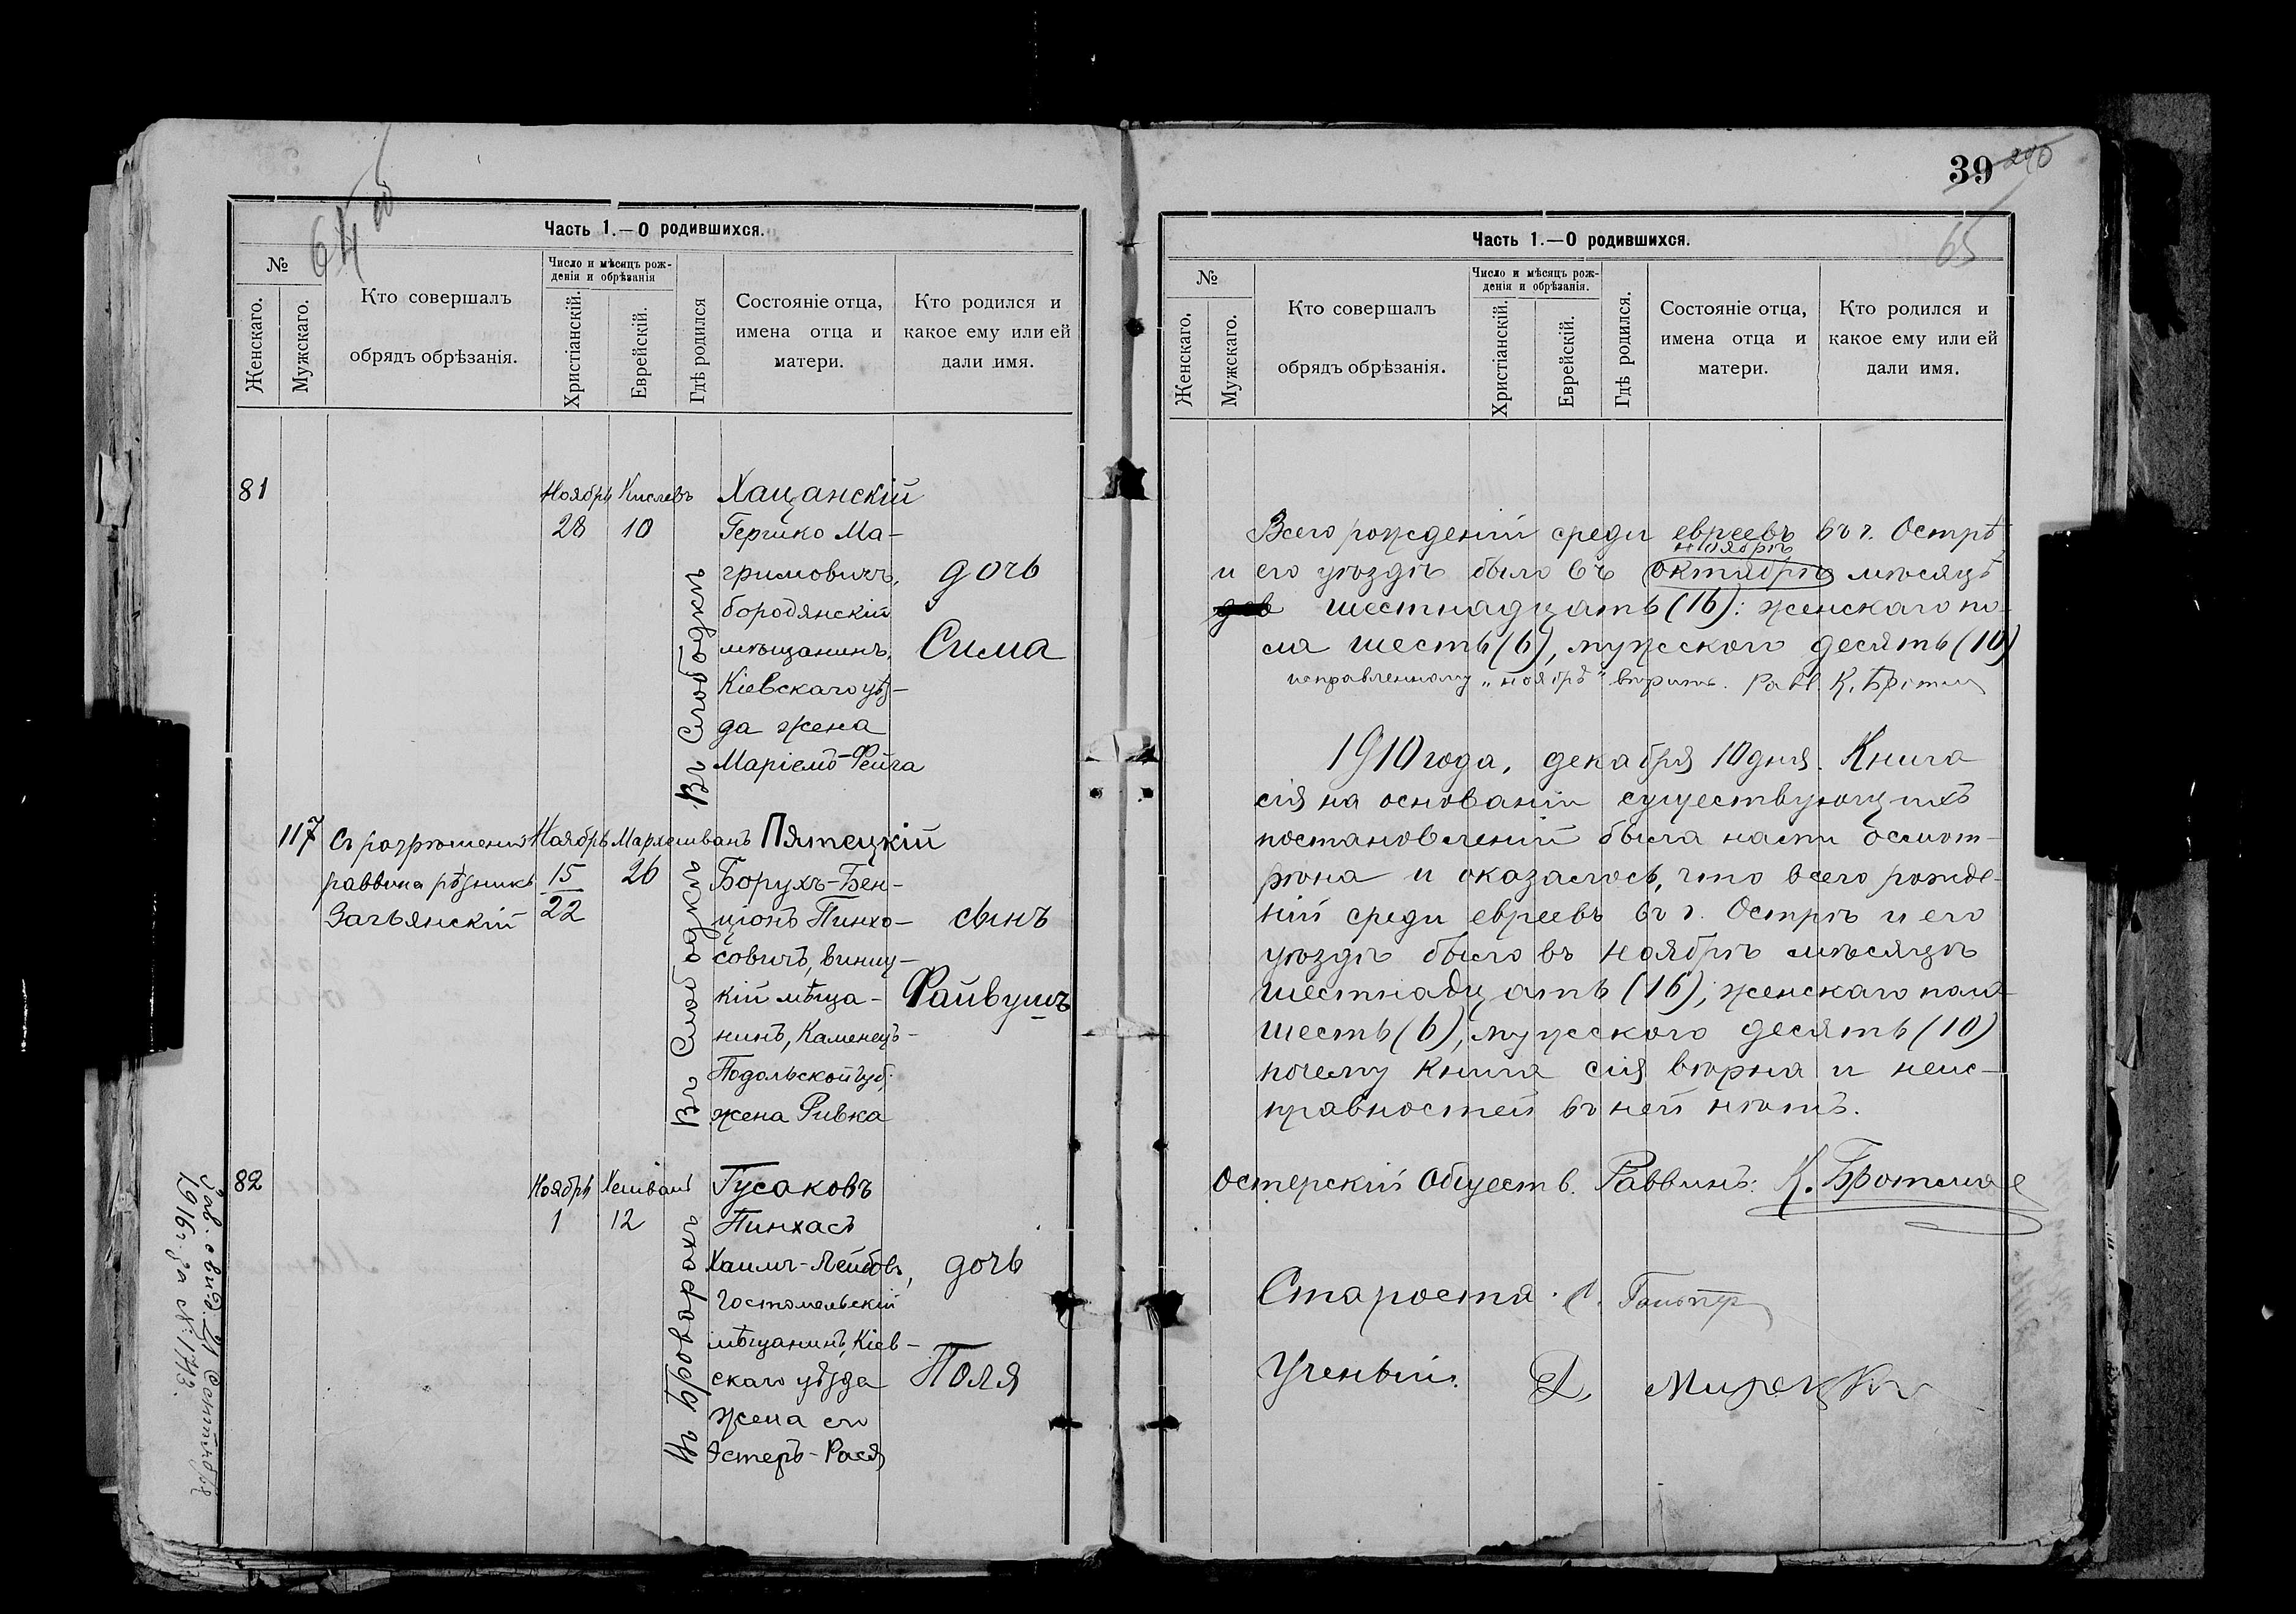 64 об
Часть 1.—О родившихся.
№
Женскаго.
Мужскаго.
Кто совершалъ
обрядъ обрѣзанія.
Число и мѣсяцъ рож-
денія и обрѣзанія
Христіанскій.
Еврейскій.
Гдѣ родился
Состояніе отца,
имена отца и
матери.
Кто родился и
какое ему или ей
дали имя.
81
Ноябрь Кислевъ
28 10
Въ Слободкѣ
Хацанскій
Гершко Ма-
гримовичъ,
бородянскій
мѣщанинъ,
Кіевскаго уѣз-
да жена
Маріемъ-Фейга
дочь
Сима
117
Съ разрѣшенія
раввина рѣзникъ
Загьянскій
Ноябрь Мархешванъ
15 26
22
Въ Слободкѣ
Пятецкій
Борухъ-Бен-
ціонъ Пинхо-
совичъ, винцу-
кій мѣща-
нинъ, Каменецъ-
Подольской губ.
жена Ривка
сынъ
Файвушъ
82
Ноябрь Хешванъ
1 12
Въ Броварахъ
Гусаковъ
Пинхасъ
Хаимъ-Лейбовъ,
Гостомельскій
мѣщанинъ, Кіев-
скаго уѣзда
жена его
Эстеръ-Рася
дочь
Поля
1916 г. за № 1743.
39
65
Часть 1.—О родившихся.
№
Женскаго.
Мужскаго.
Кто совершалъ
обрядъ обрѣзанія.
Число и мѣсяцъ рож-
денія и обрѣзанія.
Христіанскій.
Еврейскій.
Гдѣ родился.
Состояніе отца,
имена отца и
матери.
Кто родился и
какое ему или ей
дали имя.
Всего рожденій среди евреевъ въ г. Острѣ
ноябрѣ
и его уѣздѣ было въ октябрѣ мѣсяцѣ
шестнадцать (16): женскаго по-
ла шесть (6), мужского десять (10)
исправленному „ноябрѣ" вѣрить. Равв. К. Бротман
1910 года, декабря 10 дня. Книга
сія на основаніи существующихъ
постановленій была нами осмот-
рѣна и оказалось, что всего рожде-
ній среди евреевъ въ г. Острѣ и его
уѣздѣ было въ ноябрѣ мѣсяцѣ
шестнадцать (16); женскаго пола
шесть (6), мужского десять (10)
почему книга сія вѣрна и неис-
правностей въ ней нѣтъ.
Остерскій Обществ. Раввинъ: К. Бротман
Староста
Ученый: